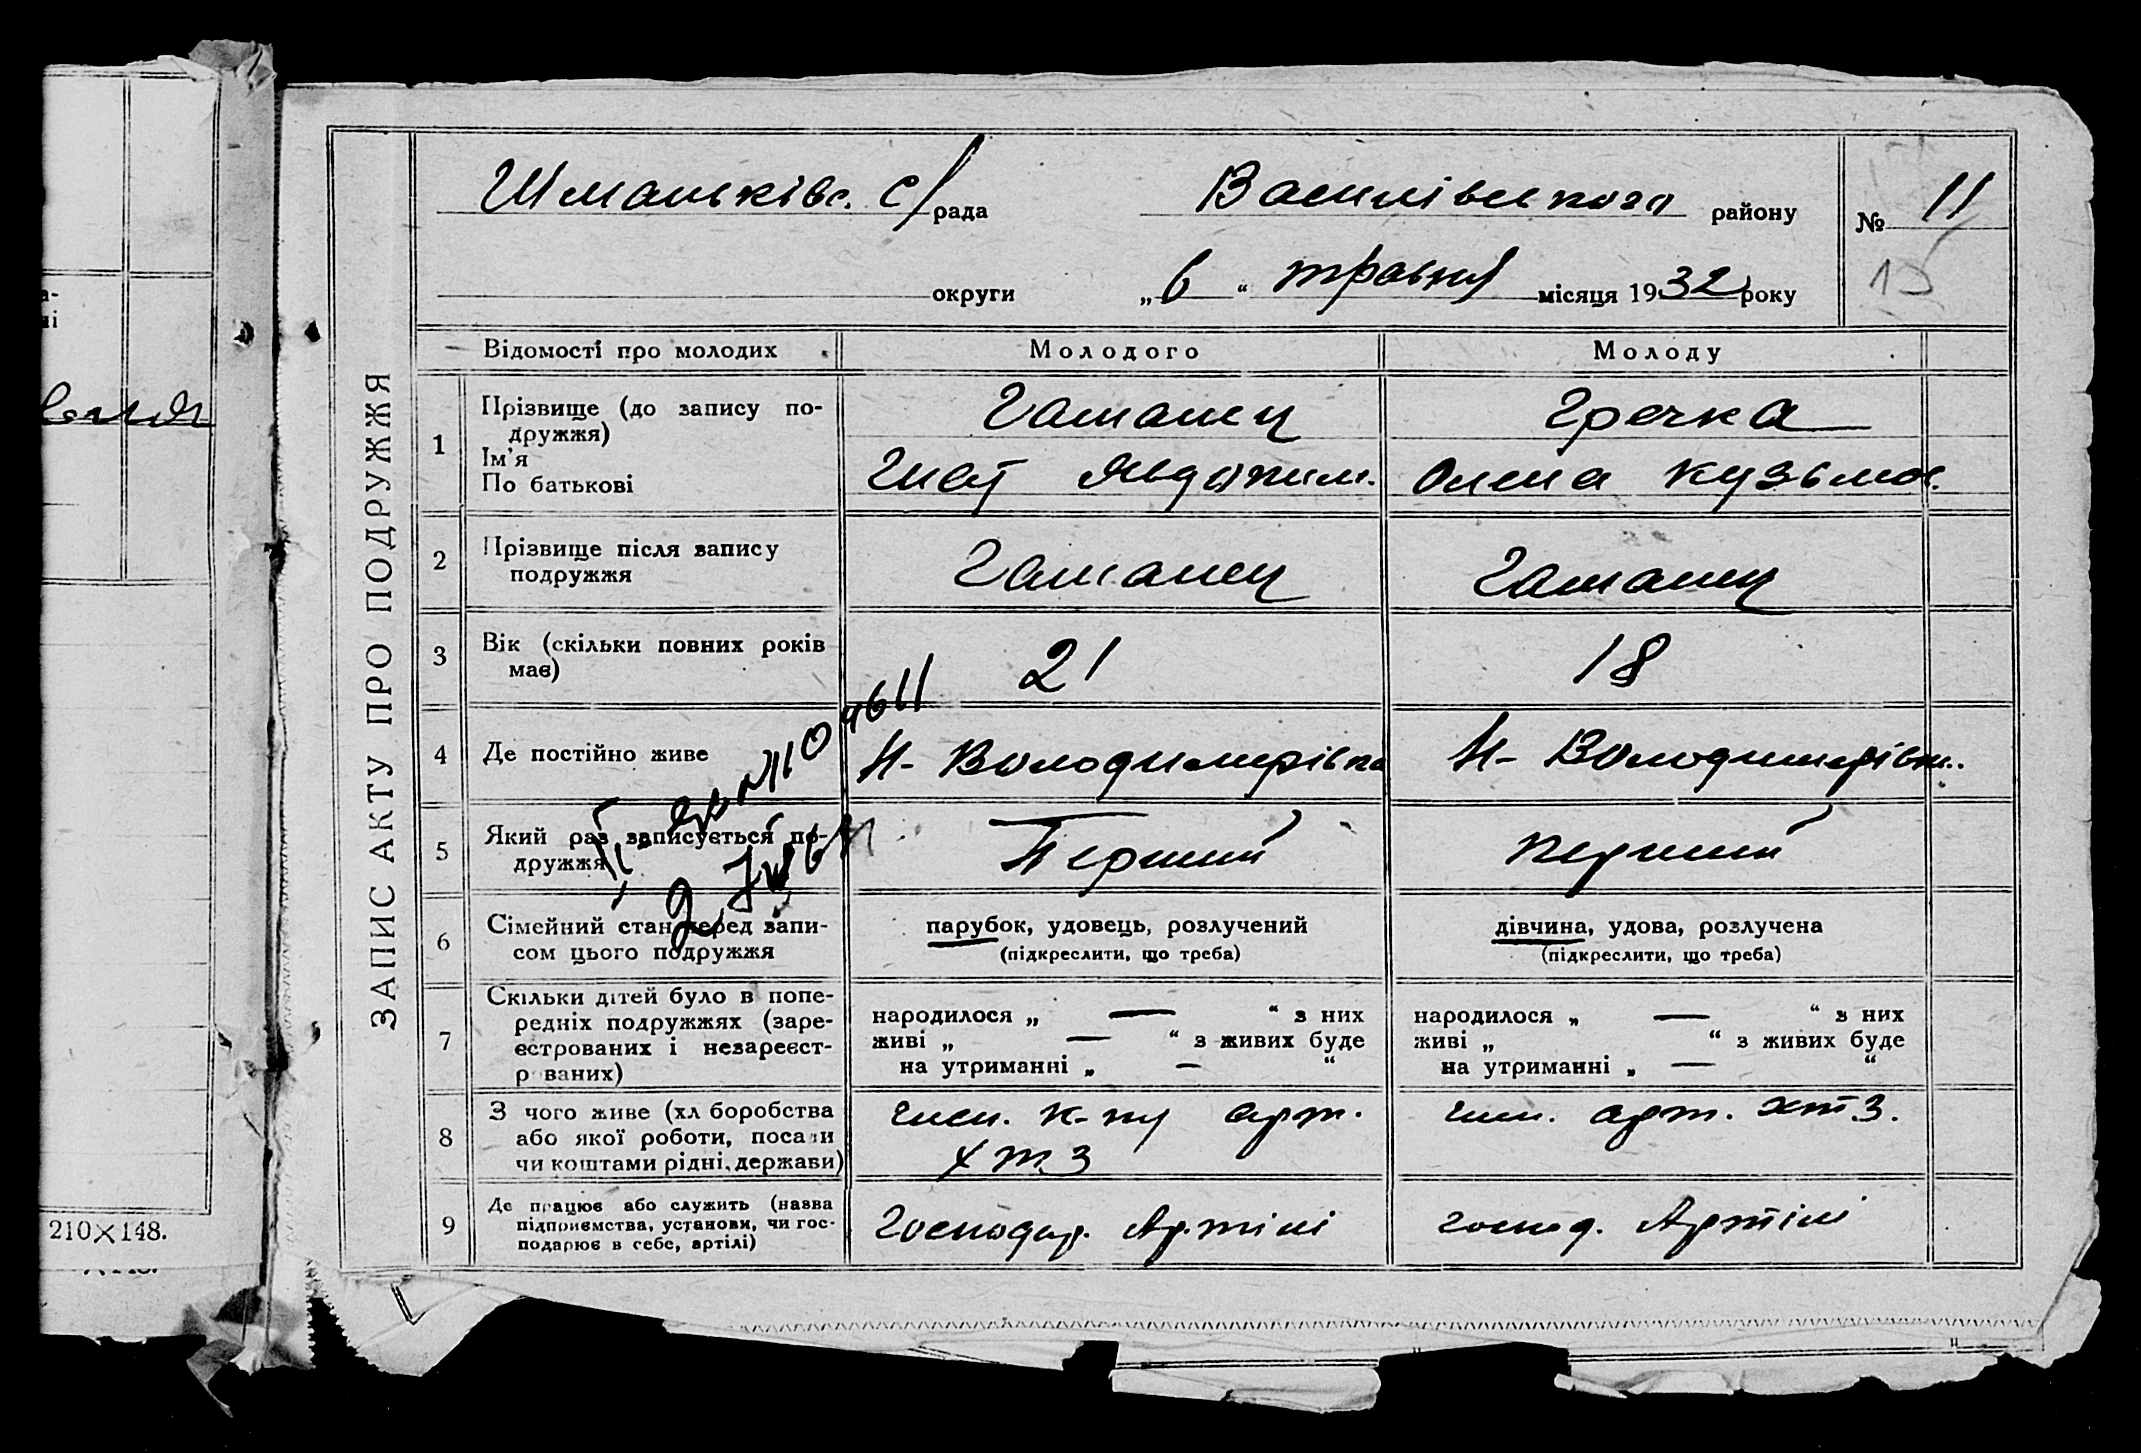 210×148.
ЗАПИС АКТУ ПРО ПОДРУЖЖЯ
Шманьків. с/рада Василівського району № 11
15
округи „6“ травня місяця 1932 року
Відомості про молодих Молодого Молоду
1 Прізвище (до запису подружжя) Гаманец Гречка
Ім’я
По батькові Гнат Явдоким. Олена Кузьмов.
2 Прізвище після запису
подружжя Гаманец Гаманец
3 Вік (скільки повних років
має) 21 18
4 Де постійно живе Н-Володимирівка Н-Володимирівк.
5 Який раз записується по-
дружжя Перший перший
6 Сімейний стан перед запи-
сом цього подружжя парубок, удовець, розлучений дівчина, удова, розлучена
(підкреслити, що треба) (підкреслити, що треба)
7 Скільки дітей було в попе-
редніх подружжях (заре-
єстрованих і незареєст-
рованих) народилося „ — “ з них народилося „ — “ з них
живі „ — “ з живих буде живі „ — “ з живих буде
на утриманні „ — “ на утриманні „ — “
8 З чого живе (хліборобства
або якої роботи, посади
чи коштами рідні, держави) член. к-пу арт. член. арт. ХТЗ.
ХТЗ
9 Де працює або служить (назва
підприємства, установи, чи гос-
подарює в себе, артілі) Господар. Артілі господ. Артілі